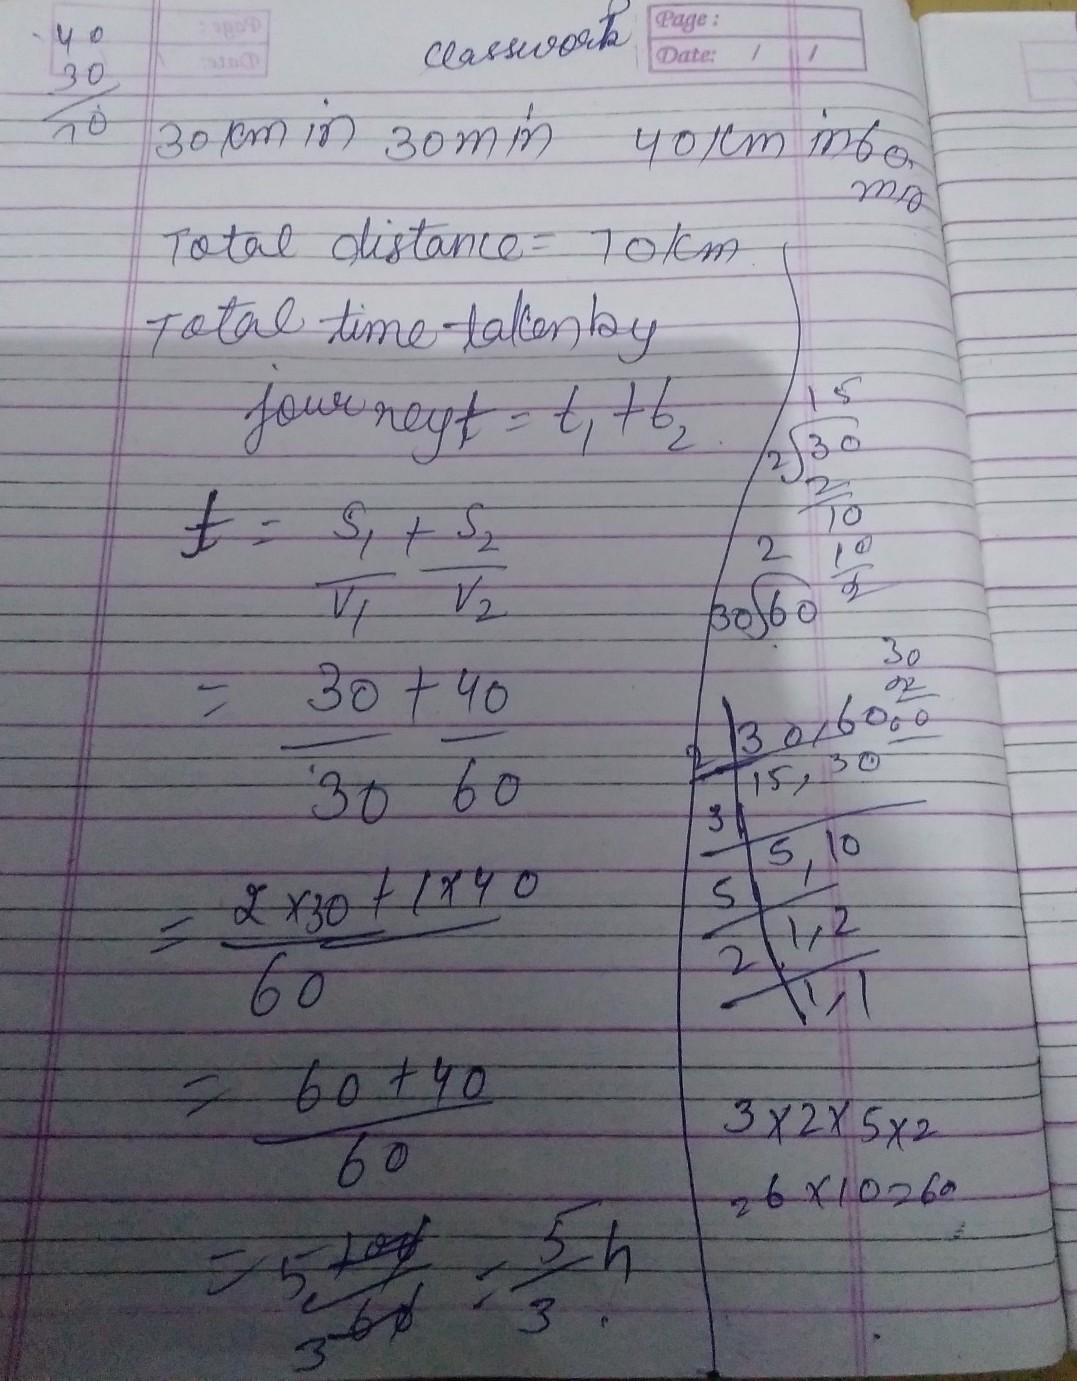 classwork
Page:
Date: / /
40
30
70
30 km in 30 min 40 km in 60
min
Total distance = 70 km
Total time taken by
journey t = t₁ + t₂
t = S₁/V₁ + S₂/V₂
= 30/30 + 40/60
= 2 × 30 + 1 × 40 / 60
= 60 + 40 / 60
= 5 100 / 3 60 = 5/3 h.
15
2)30
2
10
10
2
30)60
30
×2
60
2 | 30, 60
15, 30
3
5, 10
5
1, 2
2
1, 1
3 × 2 × 5 × 2
= 6 × 10 = 60